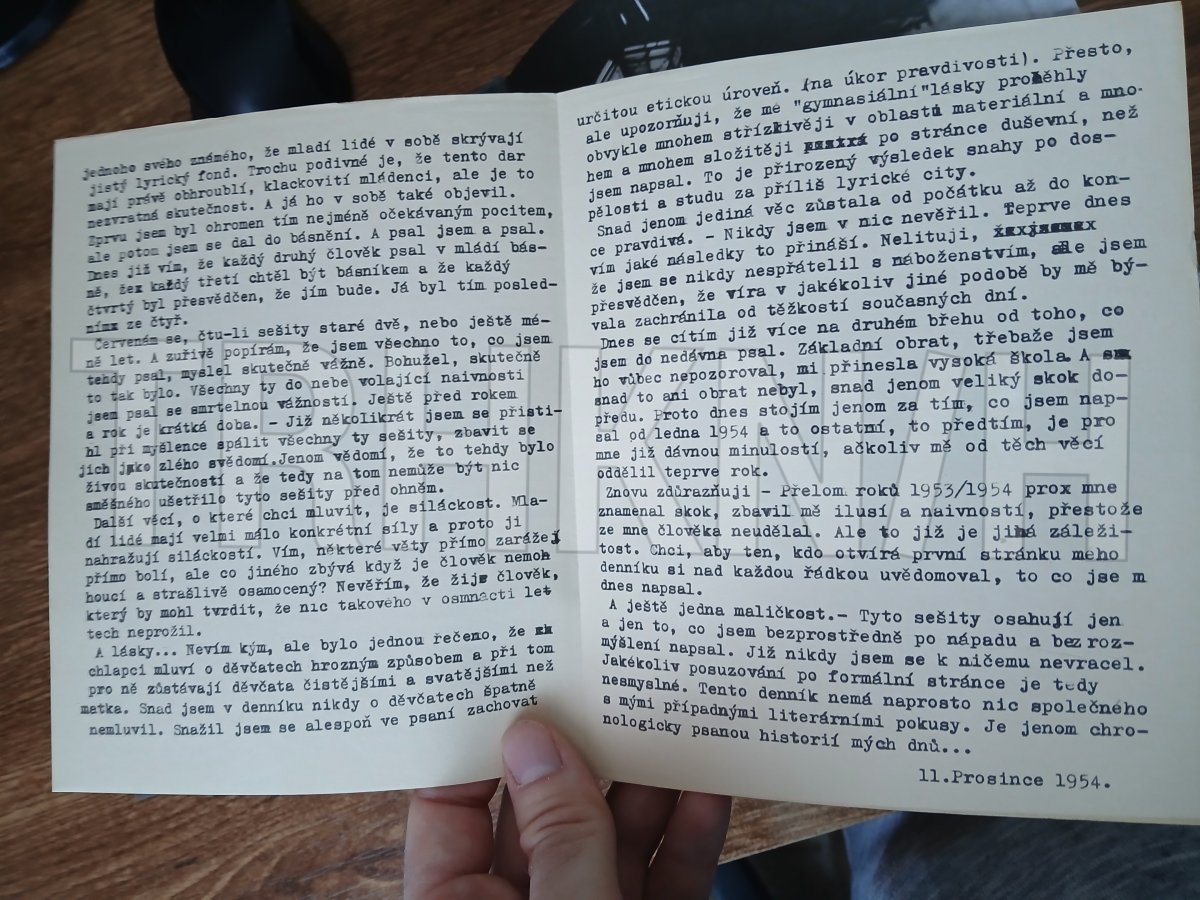 jednoho svého známého, že mladí lidé v sobě skrývají
jistý lyrický fond. Trochu podivné je, že tento dar
mají právě obhroublí, klackovití mládenci, ale je to
nezvratná skutečnost. A já ho v sobě také objevil.
Zprvu jsem byl ohromen tím nejméně očekávaným pocitem,
ale potom jsem se dal do básnění. A psal jsem a psal.
Dnes již vím, že každý druhý člověk psal v mládí bás-
mě, žex každý třetí chtěl být básníkem a že každý
čtvrtý byl přesvědčen, že jím bude. Já byl tím posled-
nímx ze čtyř.
Červenám se, čtu-li sešity staré dvě, nebo ještě mé-
ně let. A zuřivě popírám, že jsem všechno to, co jsem
tehdy psal, myslel skutečně vážně. Bohužel, skutečně
to tak bylo. Všechny ty do nebe volající naivnosti
jsem psal se smrtelnou vážností. Ještě před rokem
a rok je krátká doba. - Již několikrát jsem se přisti-
hl při myšlence spálit všechny ty sešity, zbavit se
jich jako zlého svědomí.Jenom vědomí, že to tehdy bylo
živou skutečností a že tedy na tom nemůže být nic
směšného ušetřilo tyto sešity před ohněm.
Další věcí, o které chci mluvit, je siláckost. Mla-
dí lidé mají velmi málo konkrétní síly a proto ji
nahražují siláckostí. Vím, některé věty přímo zarážejí
přímo bolí, ale co jiného zbývá když je člověk nemoh
houcí a strašlivě osamocený? Nevěřím, že žije člověk,
který by mohl tvrdit, že nic takového v osmnácti let
tech neprožil.
A lásky... Nevím kým, ale bylo jednou řečeno, že
chlapci mluví o děvčatech hrozným způsobem a při tom
pro ně zůstávají děvčata čistějšími a svatějšími než
matka. Snad jsem v denníku nikdy o děvčatech špatně
nemluvil. Snažil jsem se alespoň ve psaní zachovat
určitou etickou úroveň. (na úkor pravdivosti). Přesto,
ale upozorňuji, že mé "gymnasiální"lásky proběhly
obvykle mnohem střízlivěji v oblasti materiální a mno-
hem a mnohem složitěji po stránce duševní, než
jsem napsal. To je přirozený výsledek snahy po dos-
pělosti a studu za příliš lyrické city.
Snad jenom jediná věc zůstala od počátku až do kon-
ce pravdivá. - Nikdy jsem v nic nevěřil. Teprve dnes
vím jaké následky to přináší. Nelituji,
že jsem se nikdy nespřátelil s náboženstvím, ale jsem
přesvědčen, že víra v jakékoliv jiné podobě by mě bý-
vala zachránila od těžkostí současných dní.
Dnes se cítím již více na druhém břehu od toho, co
jsem do nedávna psal. Základní obrat, třebaže jsem
ho vůbec nepozoroval, mi přinesla vysoká škola. A
snad to ani obrat nebyl, snad jenom veliký skok do-
předu. Proto dnes stojím jenom za tím, co jsem nap-
sal od ledna 1954 a to ostatní, to předtím, je pro
mne již dávnou minulostí, ačkoliv mě od těch věcí
oddělil teprve rok.
Znovu zdůrazňuji - Přelom roků 1953/1954 prox mne
znamenal skok, zbavil mě ilusí a naivností, přestože
ze mne člověka neudělal. Ale to již je jiná záleži-
tost. Chci, aby ten, kdo otvírá první stránku mého
denníku si nad každou řádkou uvědomoval, to co jse m
dnes napsal.
A ještě jedna maličkost.- Tyto sešity osahují jen
a jen to, co jsem bezprostředně po nápadu a bez roz-
mýšlení napsal. Již nikdy jsem se k ničemu nevracel.
Jakékoliv posuzování po formální stránce je tedy
nesmyslné. Tento denník nemá naprosto nic společného
s mými případnými literárními pokusy. Je jenom chro-
nologicky psanou historií mých dnů...
11.Prosince 1954.
TRHKNIH